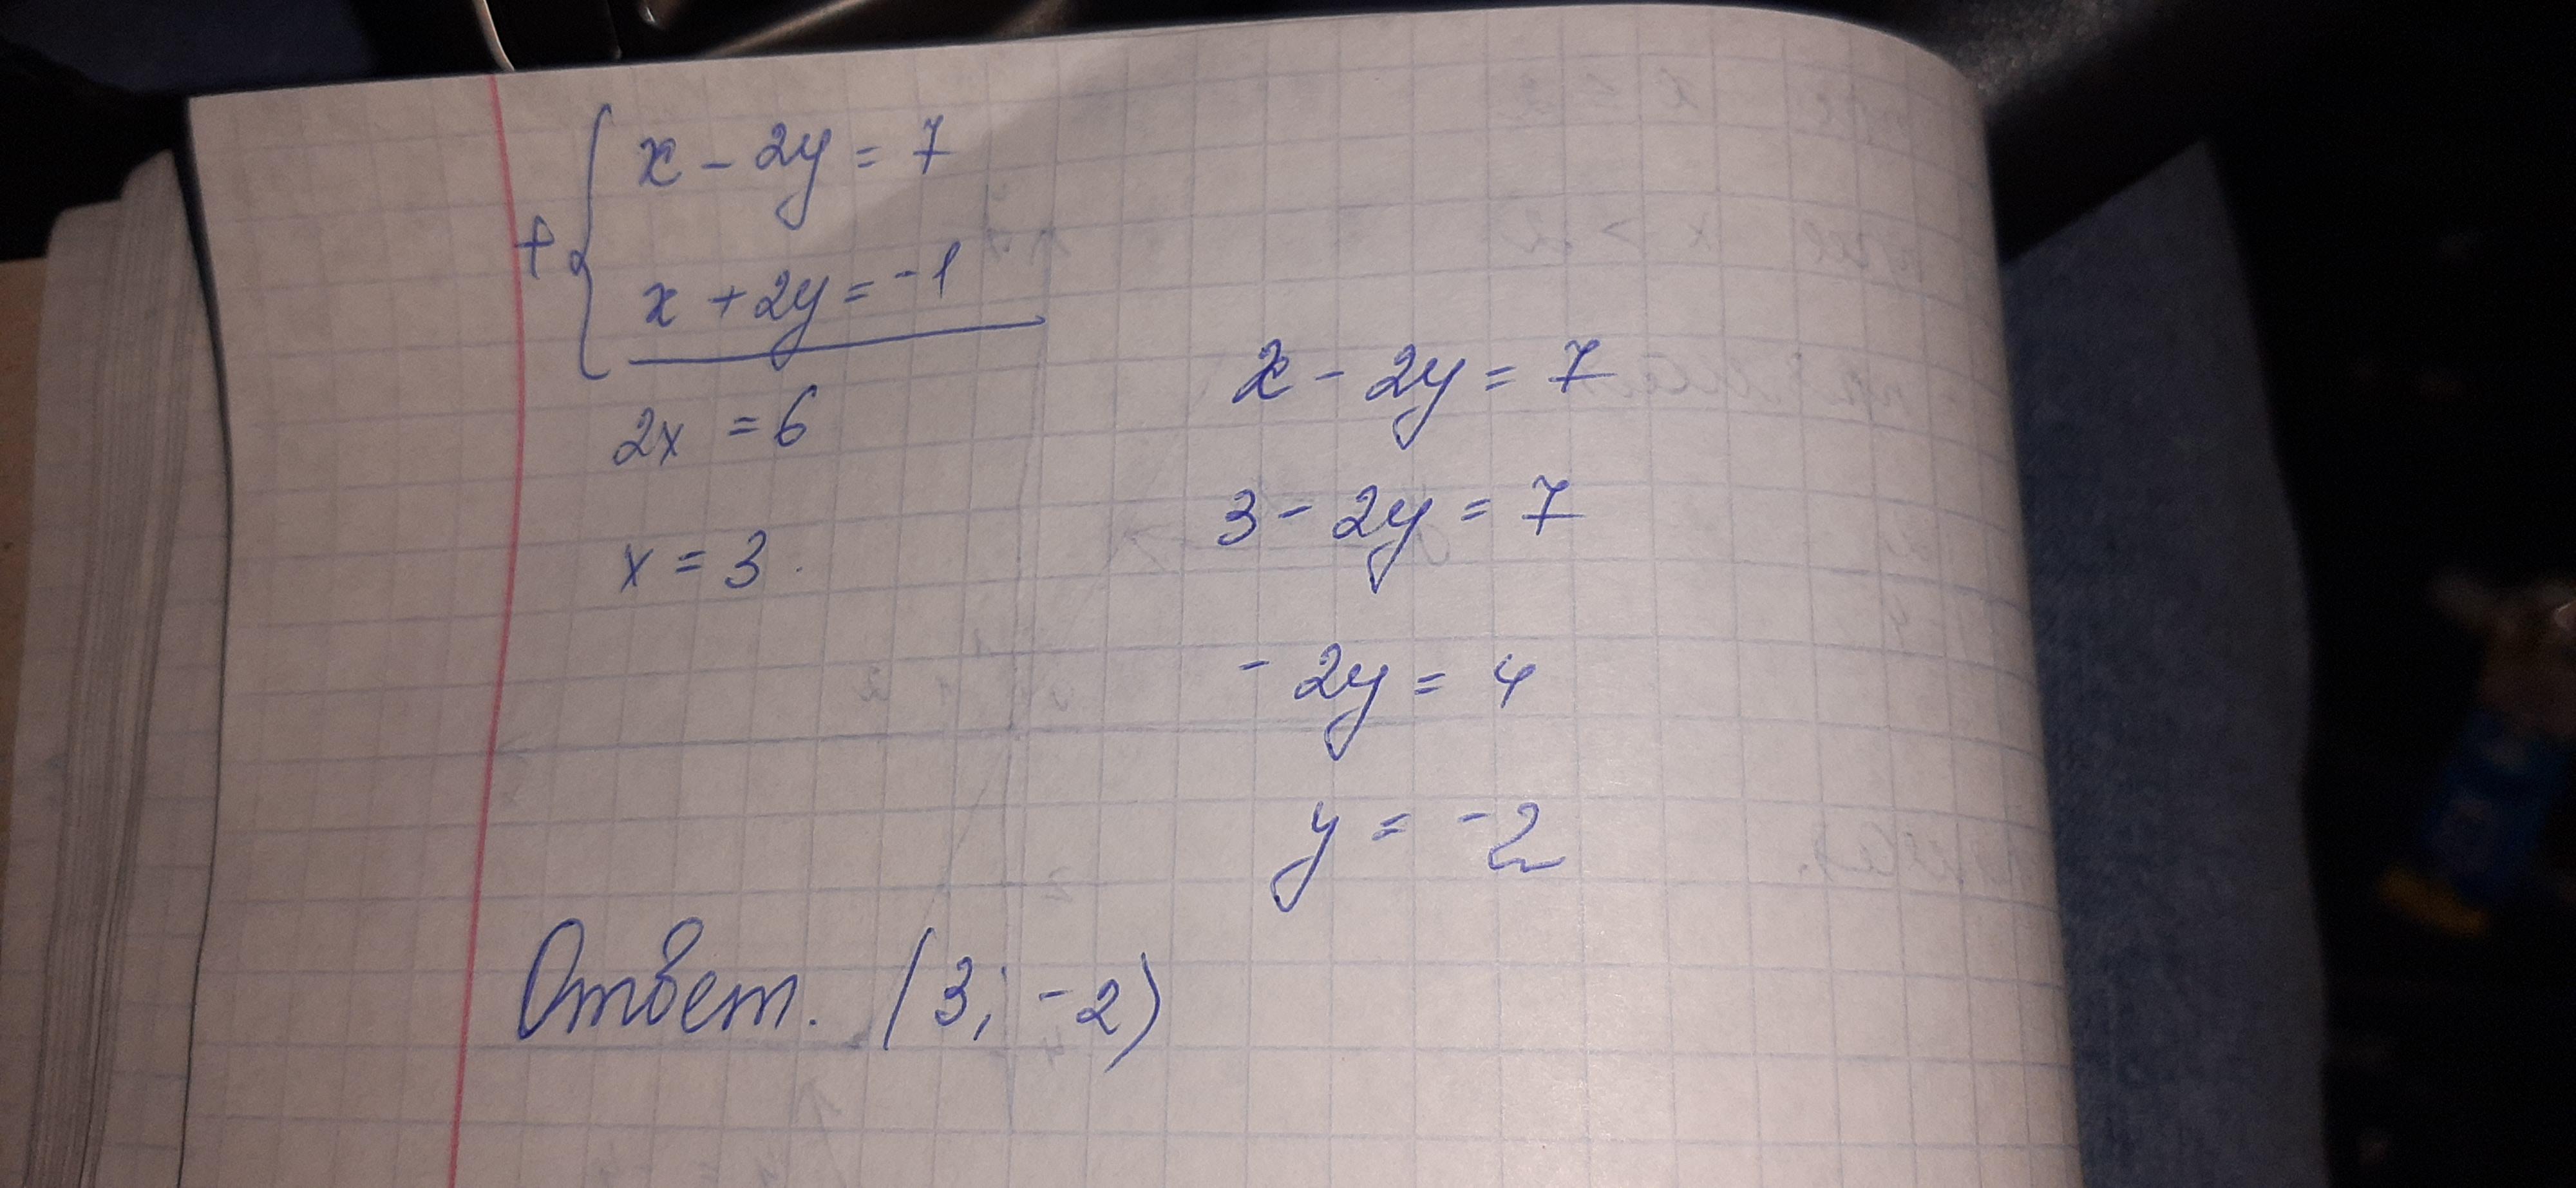 x - 2y = 7
+
x + 2y = -1
2x = 6
x = 3
x - 2y = 7
3 - 2y = 7
- 2y = 4
y = -2
Ответ. (3; -2)